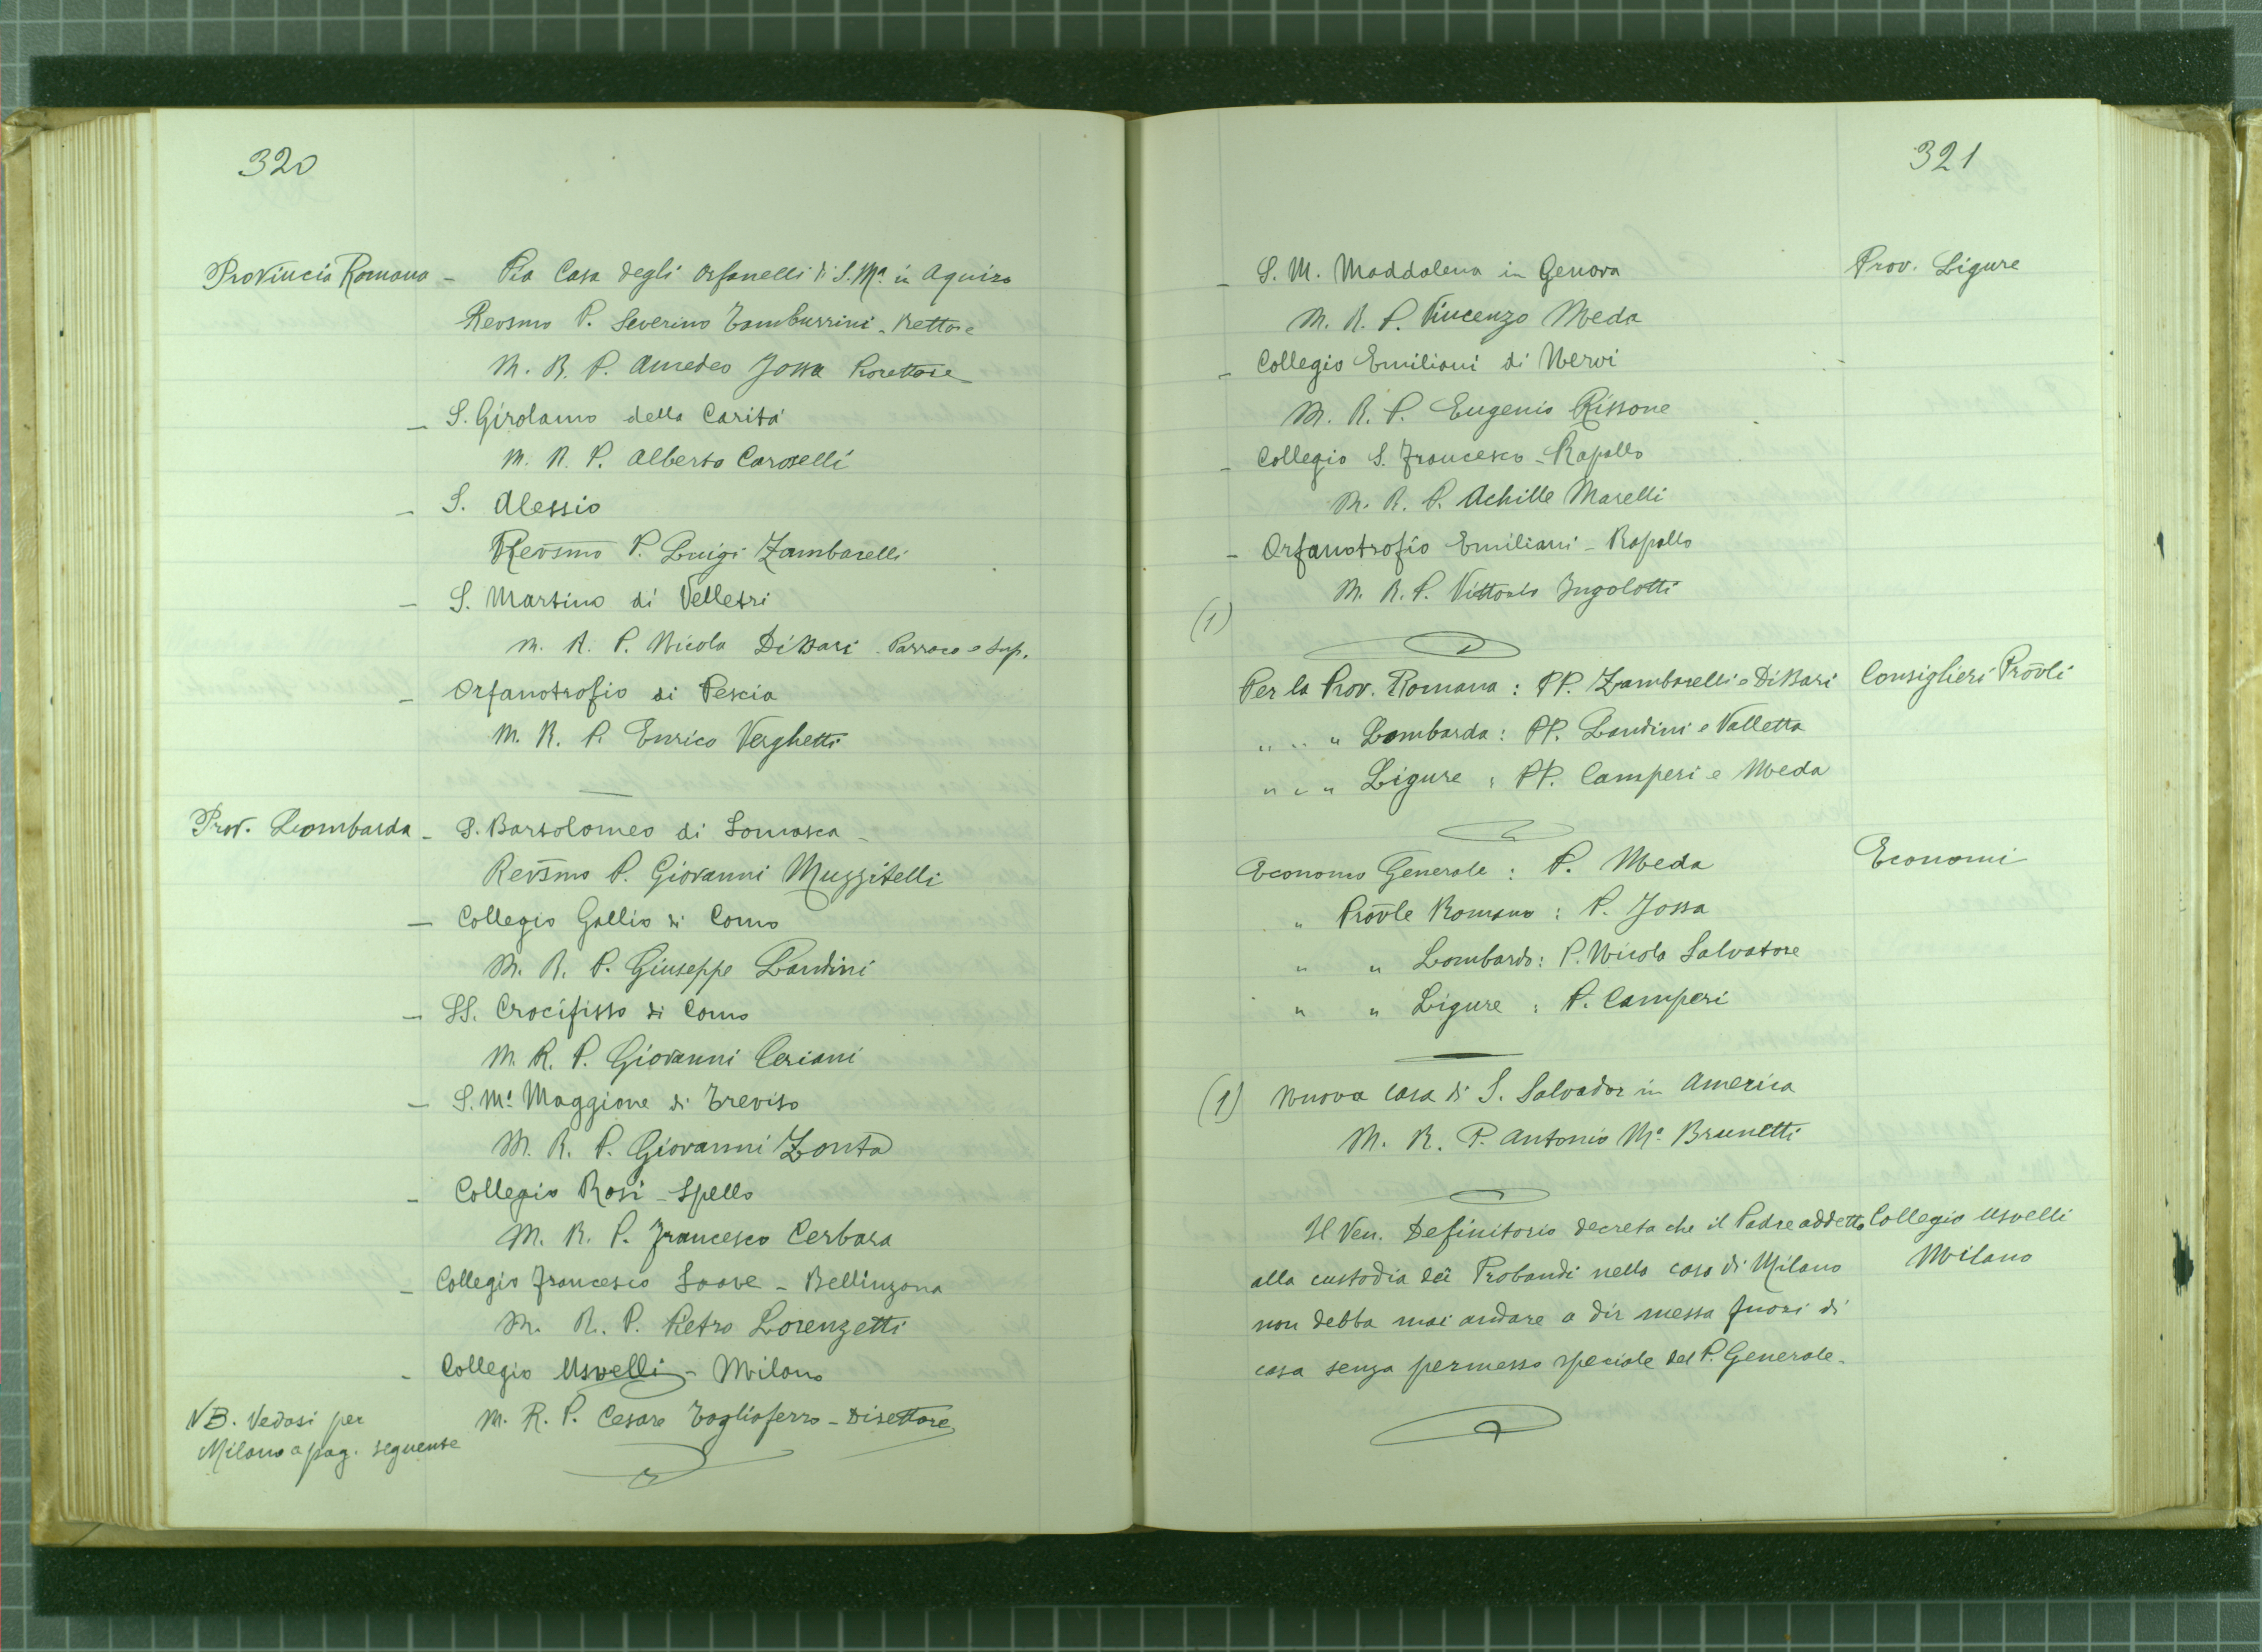 320
Provincia Romana - Pia Casa degli Orfanelli di S. Mª in Aquiro
Revsmo P. Severino Tamburrini - Rettore
M. R. P. Amedeo Jossa Prorettore
- S. Girolamo della Carità
M. R. P. Alberto Caroselli
- S. Alessio
Rev̄smo P. Luigi Zambarelli
- S. Martino di Velletri
M. R. P. Nicola Di Bari - Parroco e Sup.
- Orfanotrofio di Pescia
M. R. P. Enrico Verghetti
Prov. Lombarda - S. Bartolomeo di Somasca -
Rev̄smo P. Giovanni Muzzitelli
- Collegio Gallio di Como
M. R. P. Giuseppe Landini
- SS. Crocifisso di Como
M. R. P. Giovanni Ceriani
- S. Mª Maggiore di Treviso
M. R. P. Giovanni Zonta
- Collegio Rosi - Spello
M. R. P. Francesco Cerbara
- Collegio Francesco Soave - Bellinzona
M. R. P. Pietro Lorenzetti
- Collegio Usuelli - Milano
M. R. P. Cesare Tagliaferro - Direttore
NB. Vedasi per
Milano a pag. seguente
321
- S. M. Maddalena in Genova Prov. Ligure
M. R. P. Vincenzo Meda
- Collegio Emiliani di Nervi
M. R. P. Eugenio Rissone
- Collegio S. Francesco - Rapallo
M. R. P. Achille Marelli
- Orfanotrofio Emiliani - Rapallo
M. R. P. Vittorio Ingolotti
(1)
Per la Prov. Romana : PP. Zambarelli e Di Bari Consiglieri Prov̄li
" " " Lombarda : PP. Landini e Valletta
" " " Ligure : PP. Camperi e Meda
Economo Generale : P. Meda Economi
" Prov̄le Romano : P. Jossa
" " Lombardo : P. Nicola Salvatore
" " Ligure : P. Camperi
(1) Nuova casa di S. Salvador in America
M. R. P. Antonio Mª Brunetti
Il Ven. Definitorio decreta che il Padre addetto Collegio Usuelli
alla custodia dei Probandi nella casa di Milano Milano
non debba mai andare a dir messa fuori di
casa senza permesso speciale del P. Generale.